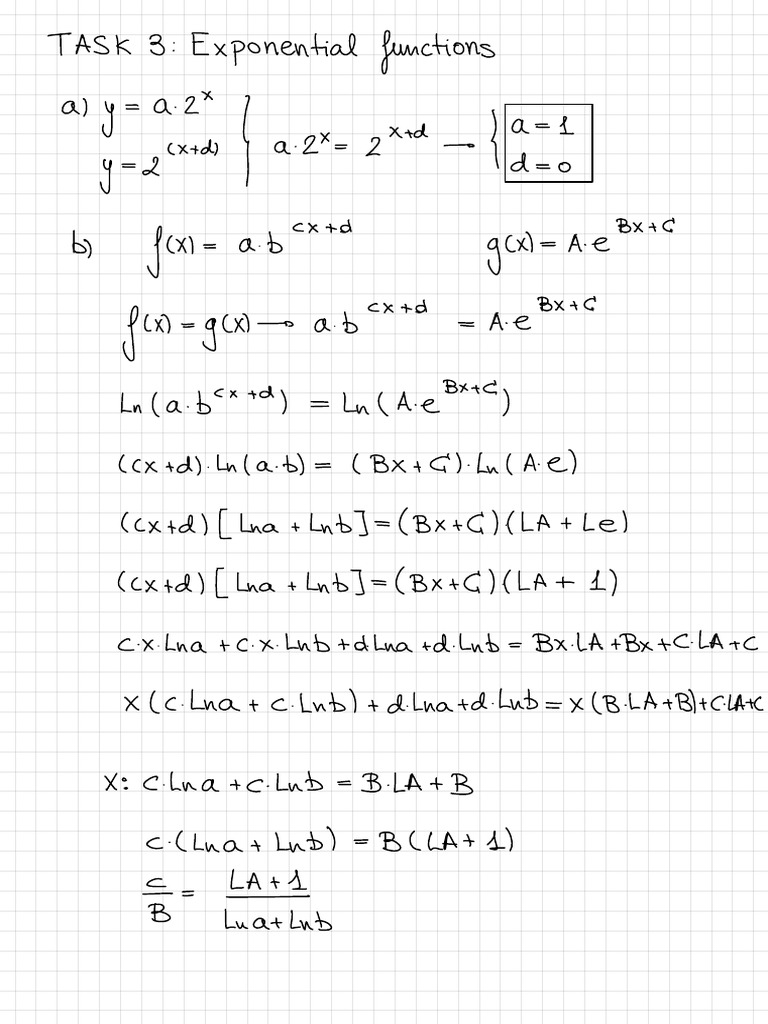 TASK 3: Exponential functions
a) y = a·2^x } a·2^x = 2^(x+d) → { a = 1
y = 2^(x+d) d = 0
b) f(x) = a·b^(cx+d) g(x) = A·e^(Bx+C)
f(x) = g(x) → a·b^(cx+d) = A·e^(Bx+C)
Ln(a·b^(cx+d)) = Ln(A·e^(Bx+C))
(cx+d)·Ln(a·b) = (Bx+C)·Ln(A·e)
(cx+d)[Lna + Lnb] = (Bx+C)(LA + Le)
(cx+d)[Lna + Lnb] = (Bx+C)(LA + 1)
c·x·Lna + c·x·Lnb + dLna + d·Lnb = Bx·LA + Bx + C·LA + C
x(c·Lna + c·Lnb) + d·Lna + d·Lnb = x(B·LA + B) + C·LA + C
x: c·Lna + c·Lnb = B·LA + B
c·(Lna + Lnb) = B(LA + 1)
c/B = (LA + 1)/(Lna + Lnb)